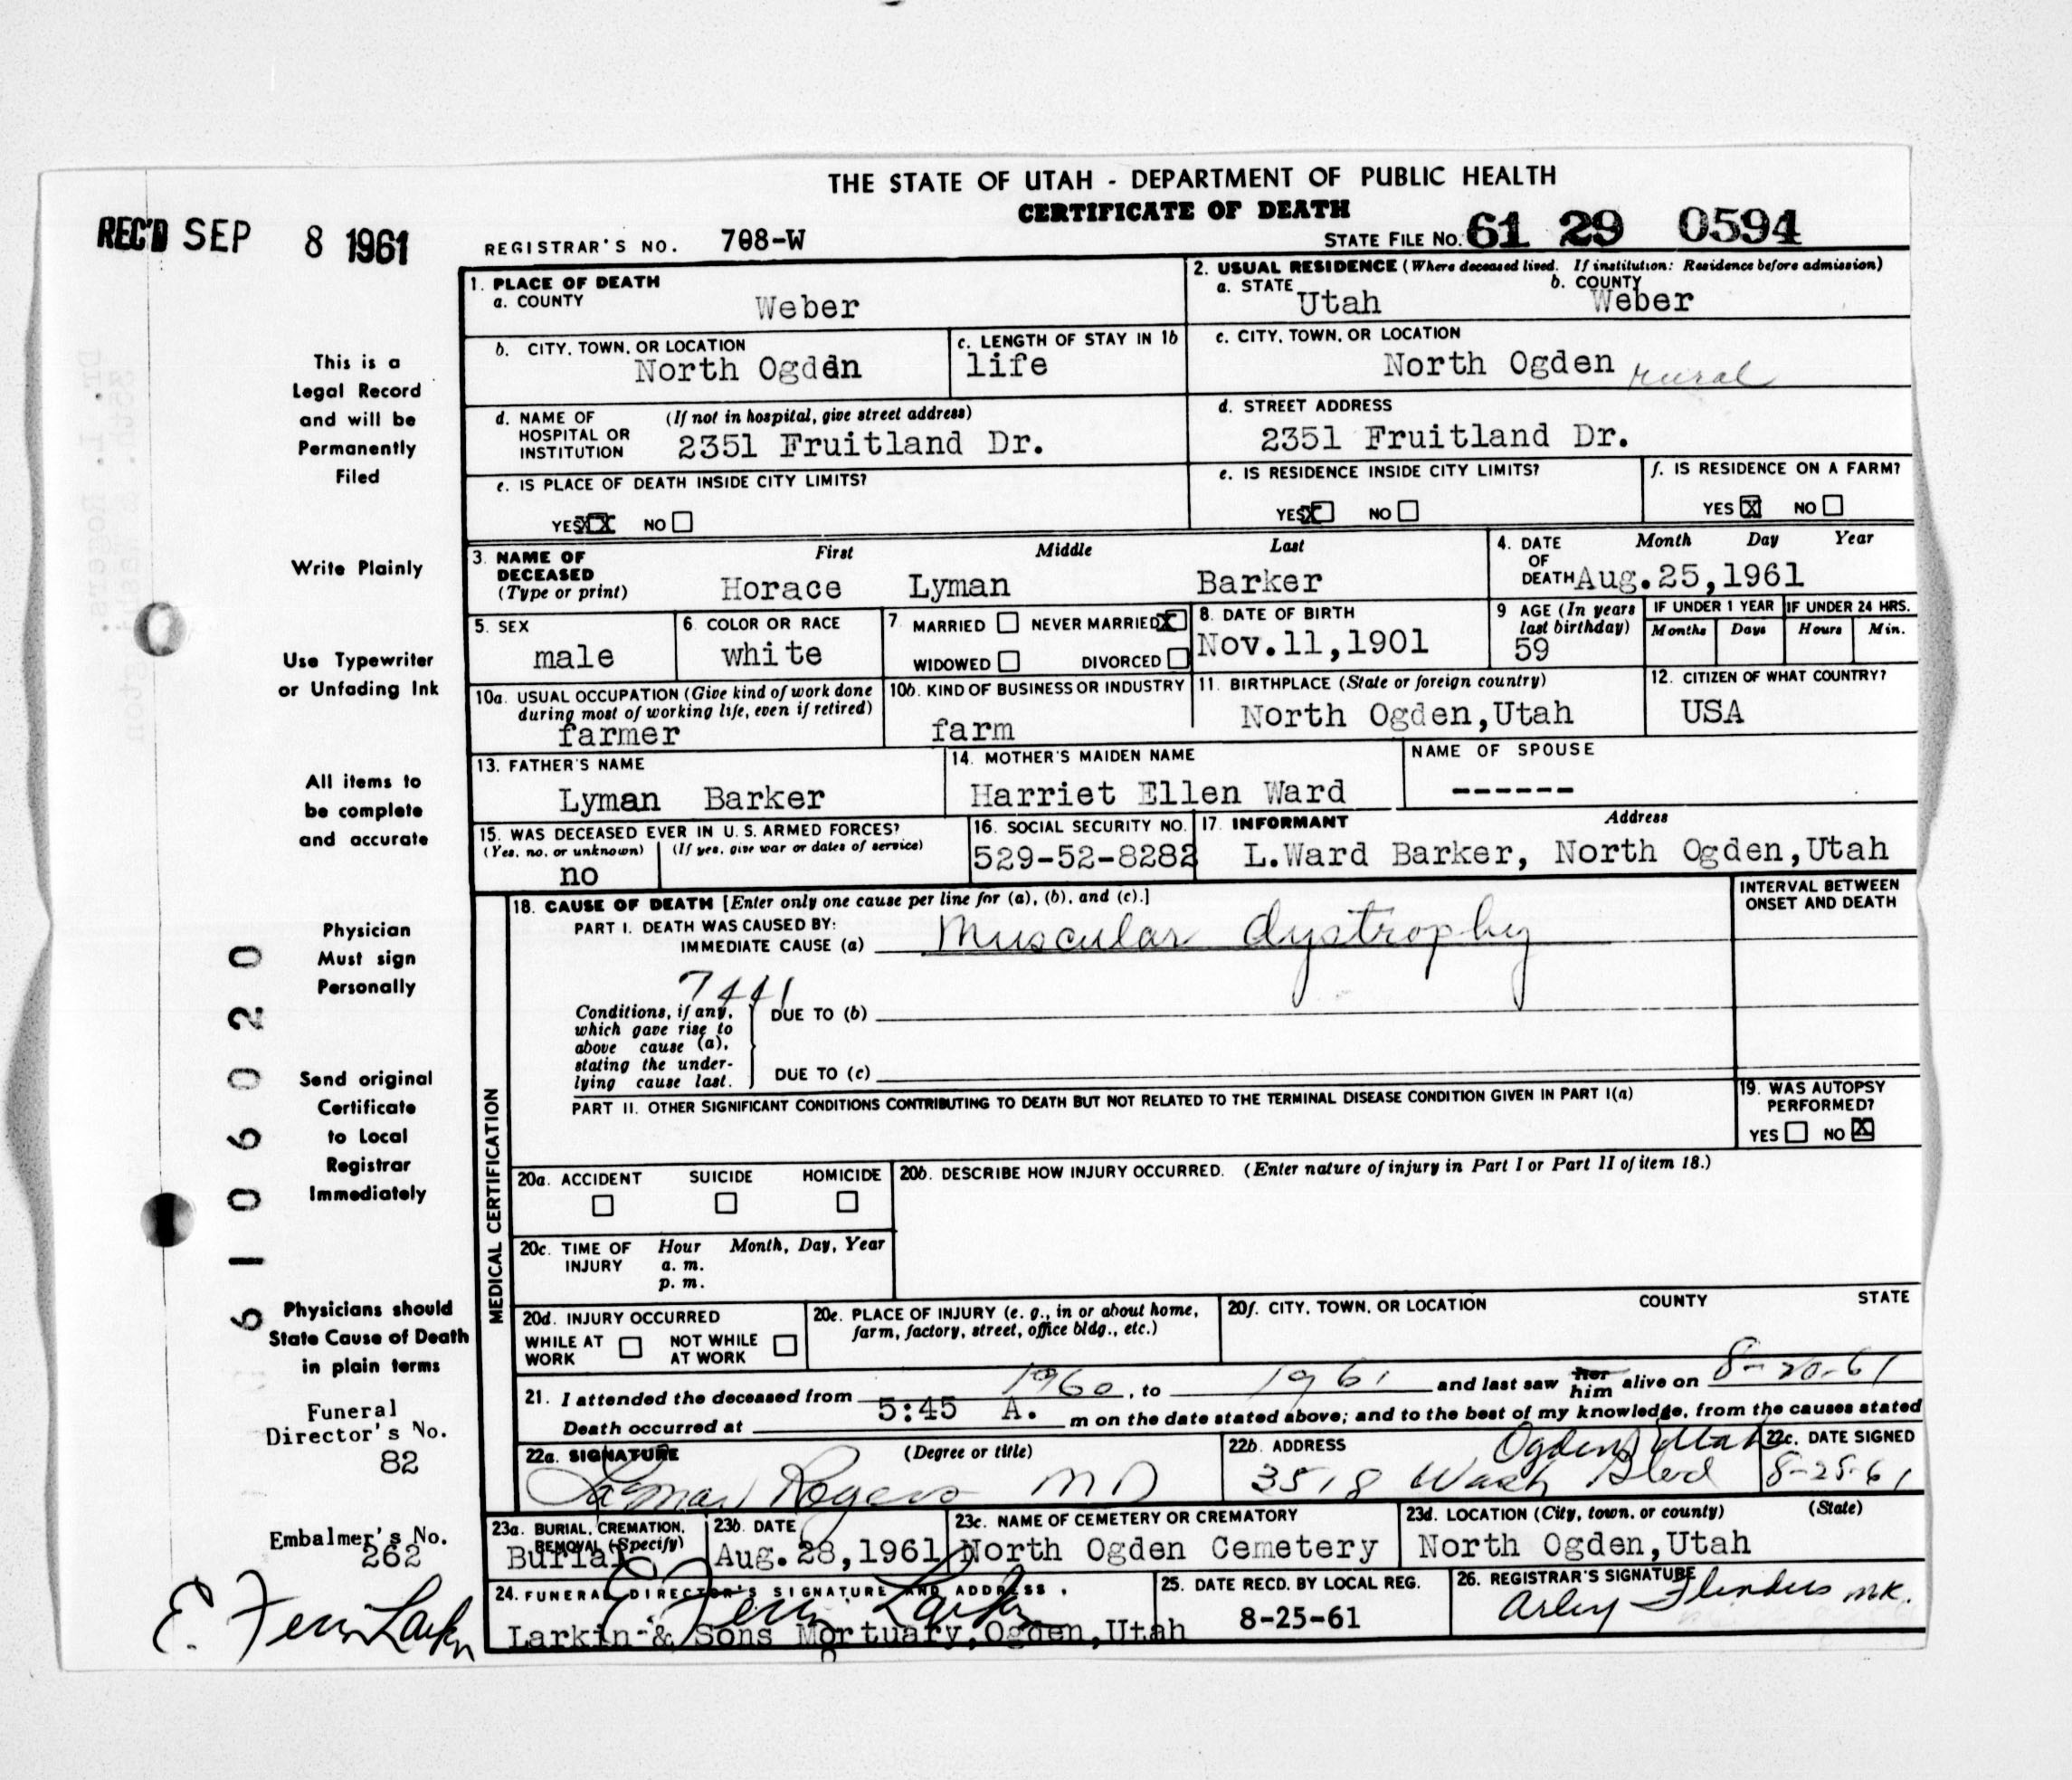 THE STATE OF UTAH - DEPARTMENT OF PUBLIC HEALTH
CERTIFICATE OF DEATH
REC'D SEP 8 1961
REGISTRAR'S NO. 708-W
STATE FILE NO. 61 29 0594
1. PLACE OF DEATH
a. COUNTY Weber
2. USUAL RESIDENCE (Where deceased lived. If institution: Residence before admission)
a. STATE Utah b. COUNTY Weber
b. CITY, TOWN, OR LOCATION
North Ogden
c. LENGTH OF STAY IN 1b
life
c. CITY, TOWN, OR LOCATION
North Ogden rural
d. NAME OF HOSPITAL OR INSTITUTION (If not in hospital, give street address)
2351 Fruitland Dr.
d. STREET ADDRESS
2351 Fruitland Dr.
e. IS PLACE OF DEATH INSIDE CITY LIMITS?
YES XX NO
e. IS RESIDENCE INSIDE CITY LIMITS?
YES X NO
f. IS RESIDENCE ON A FARM?
YES X NO
3. NAME OF DECEASED (Type or print)
First Middle Last
Horace Lyman Barker
4. DATE OF DEATH Month Day Year
Aug.25,1961
5. SEX
male
6. COLOR OR RACE
white
7. MARRIED NEVER MARRIED X
WIDOWED DIVORCED
8. DATE OF BIRTH
Nov.11,1901
9 AGE (In years last birthday)
59
IF UNDER 1 YEAR IF UNDER 24 HRS.
Months Days Hours Min.
10a. USUAL OCCUPATION (Give kind of work done during most of working life, even if retired)
farmer
10b. KIND OF BUSINESS OR INDUSTRY
farm
11. BIRTHPLACE (State or foreign country)
North Ogden,Utah
12. CITIZEN OF WHAT COUNTRY?
USA
13. FATHER'S NAME
Lyman Barker
14. MOTHER'S MAIDEN NAME
Harriet Ellen Ward
NAME OF SPOUSE
------
15. WAS DECEASED EVER IN U. S. ARMED FORCES?
(Yes, no, or unknown) (If yes, give war or dates of service)
no
16. SOCIAL SECURITY NO.
529-52-8282
17. INFORMANT Address
L.Ward Barker, North Ogden,Utah
MEDICAL CERTIFICATION
18. CAUSE OF DEATH [Enter only one cause per line for (a), (b), and (c).]
INTERVAL BETWEEN ONSET AND DEATH
PART I. DEATH WAS CAUSED BY:
IMMEDIATE CAUSE (a) Muscular dystrophy
7441
Conditions, if any, which gave rise to above cause (a), stating the underlying cause last.
DUE TO (b)
DUE TO (c)
PART II. OTHER SIGNIFICANT CONDITIONS CONTRIBUTING TO DEATH BUT NOT RELATED TO THE TERMINAL DISEASE CONDITION GIVEN IN PART I(a)
19. WAS AUTOPSY PERFORMED?
YES NO X
20a. ACCIDENT SUICIDE HOMICIDE
20b. DESCRIBE HOW INJURY OCCURRED. (Enter nature of injury in Part I or Part II of item 18.)
20c. TIME OF INJURY Hour Month, Day, Year
a. m.
p. m.
20d. INJURY OCCURRED
WHILE AT WORK NOT WHILE AT WORK
20e. PLACE OF INJURY (e. g., in or about home, farm, factory, street, office bldg., etc.)
20f. CITY, TOWN, OR LOCATION COUNTY STATE
21. I attended the deceased from 1960, to 1961 and last saw her him alive on 8-20-61
Death occurred at 5:45 A. m on the date stated above; and to the best of my knowledge, from the causes stated
22a. SIGNATURE (Degree or title)
Lamar Rogers MD
22b. ADDRESS
Ogden Utah
3518 Wash Blvd
22c. DATE SIGNED
8-25-61
23a. BURIAL, CREMATION, REMOVAL (Specify)
Burial
23b. DATE
Aug.28,1961
23c. NAME OF CEMETERY OR CREMATORY
North Ogden Cemetery
23d. LOCATION (City, town, or county) (State)
North Ogden,Utah
24. FUNERAL DIRECTOR'S SIGNATURE AND ADDRESS
E Fern Larkin
Larkin & Sons Mortuary,Ogden,Utah
25. DATE RECD. BY LOCAL REG.
8-25-61
26. REGISTRAR'S SIGNATURE
Arley Flinders MK.
This is a
Legal Record
and will be
Permanently
Filed
Write Plainly
Use Typewriter
or Unfading Ink
All items to
be complete
and accurate
Physician
Must sign
Personally
Send original
Certificate
to Local
Registrar
Immediately
Physicians should
State Cause of Death
in plain terms
Funeral
Director's No.
82
Embalmer's No.
262
E. Fern Larkin
6106020